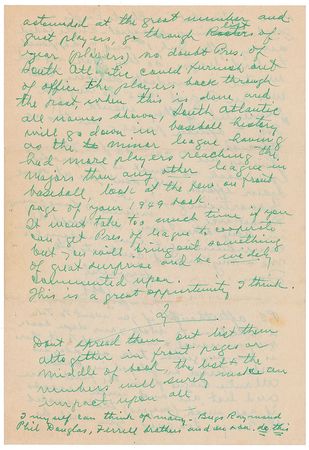 astounded at the great number and
great players, go through list of
year (players) no doubt Pres. of
South Atlantic could furnish out
of office the players back through
the past, when this is done and
all names shown, South Atlantic
will go down in baseball history
as the minor league having
had more players reaching the
majors than any other league in
baseball. look at the few on front
page of your 1949 book
It wont take too much time if you
can get Pres. of league to cooperate
but you will bring out something
of great surprise and be widely
commented upon.
This is a great opportunity I think.
Dont spread them out list them
altogether in front pages or
middle of book, the list &
numbers will surely make an
impact upon all
I myself can think of many - Bugs Raymond
Phil Douglas, Ferrell brothers and on & on. do this